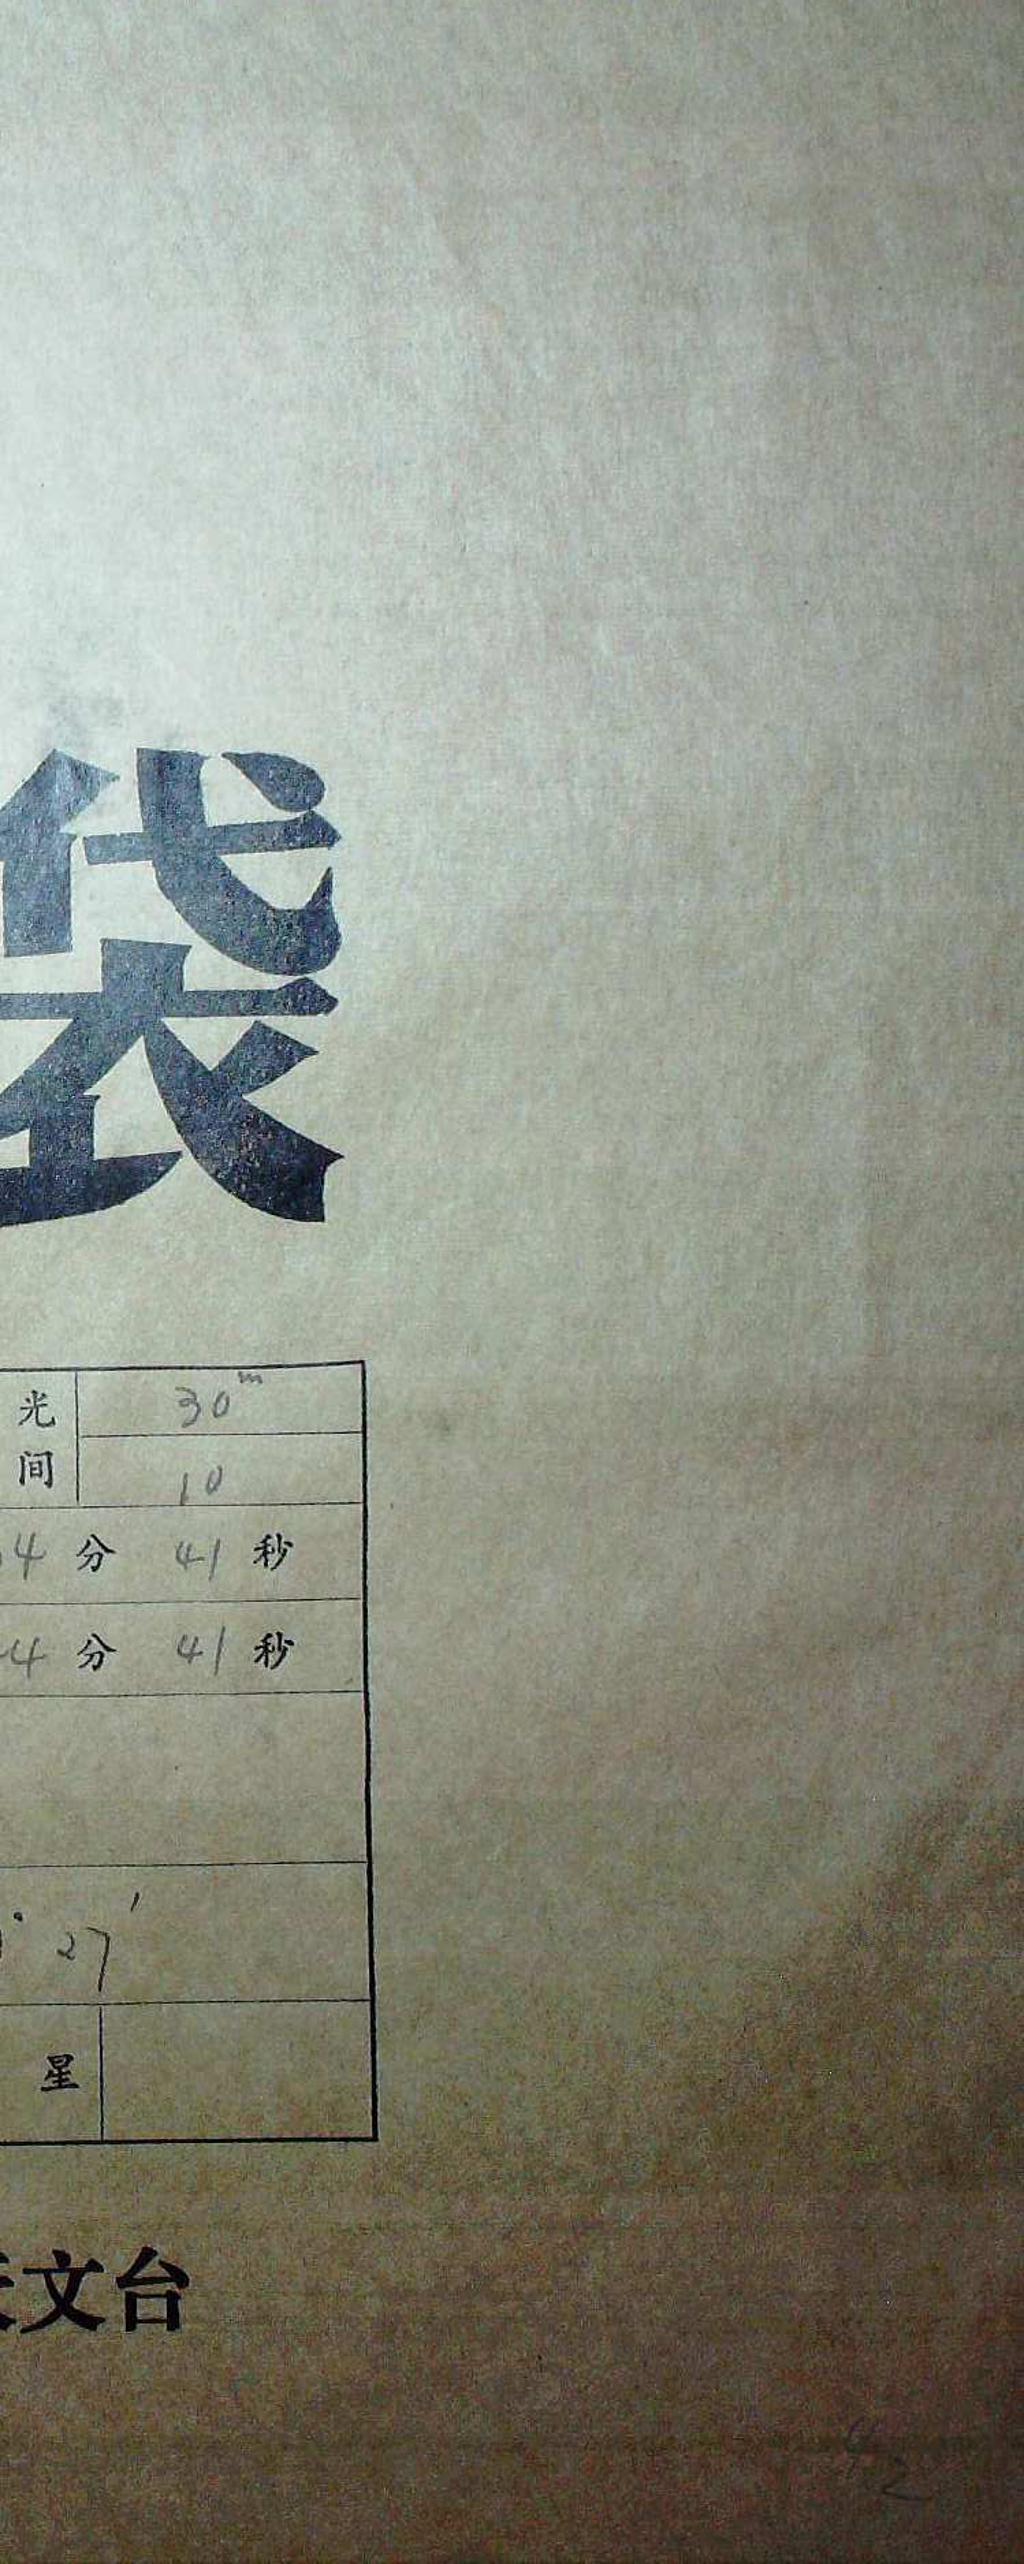 袋
光 30m
间 10
4分 41秒
4分 41秒
° 27′
星
天文台
42